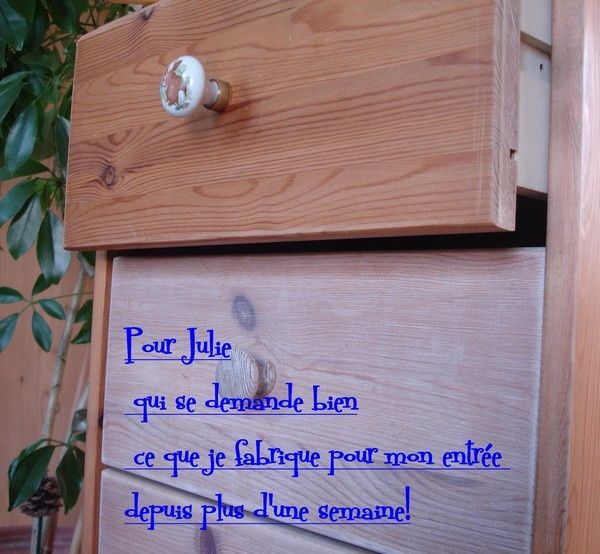 Pour Julie
qui se demande bien
ce que je fabrique pour mon entrée
depuis plus d'une semaine!